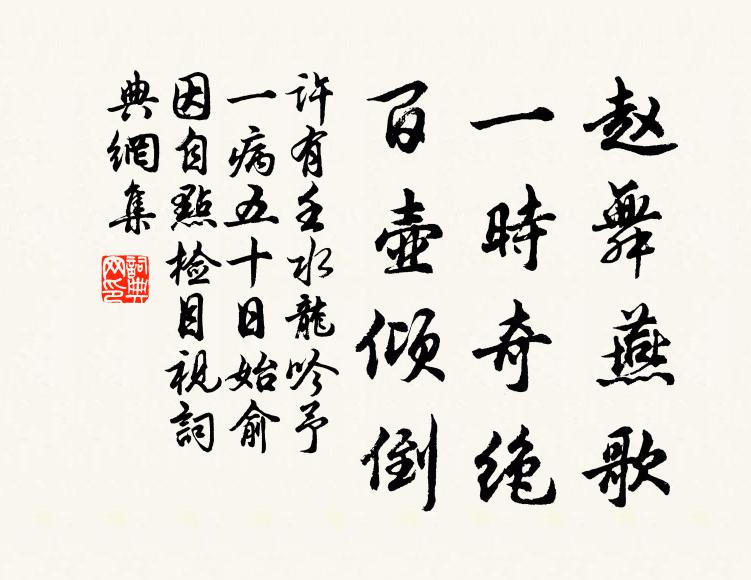 赵舞燕歌
一時奇绝
百壶倾倒
许有壬水龍吟予
一病五十日始俞
因自點检目視詞
典網集
詞典网印